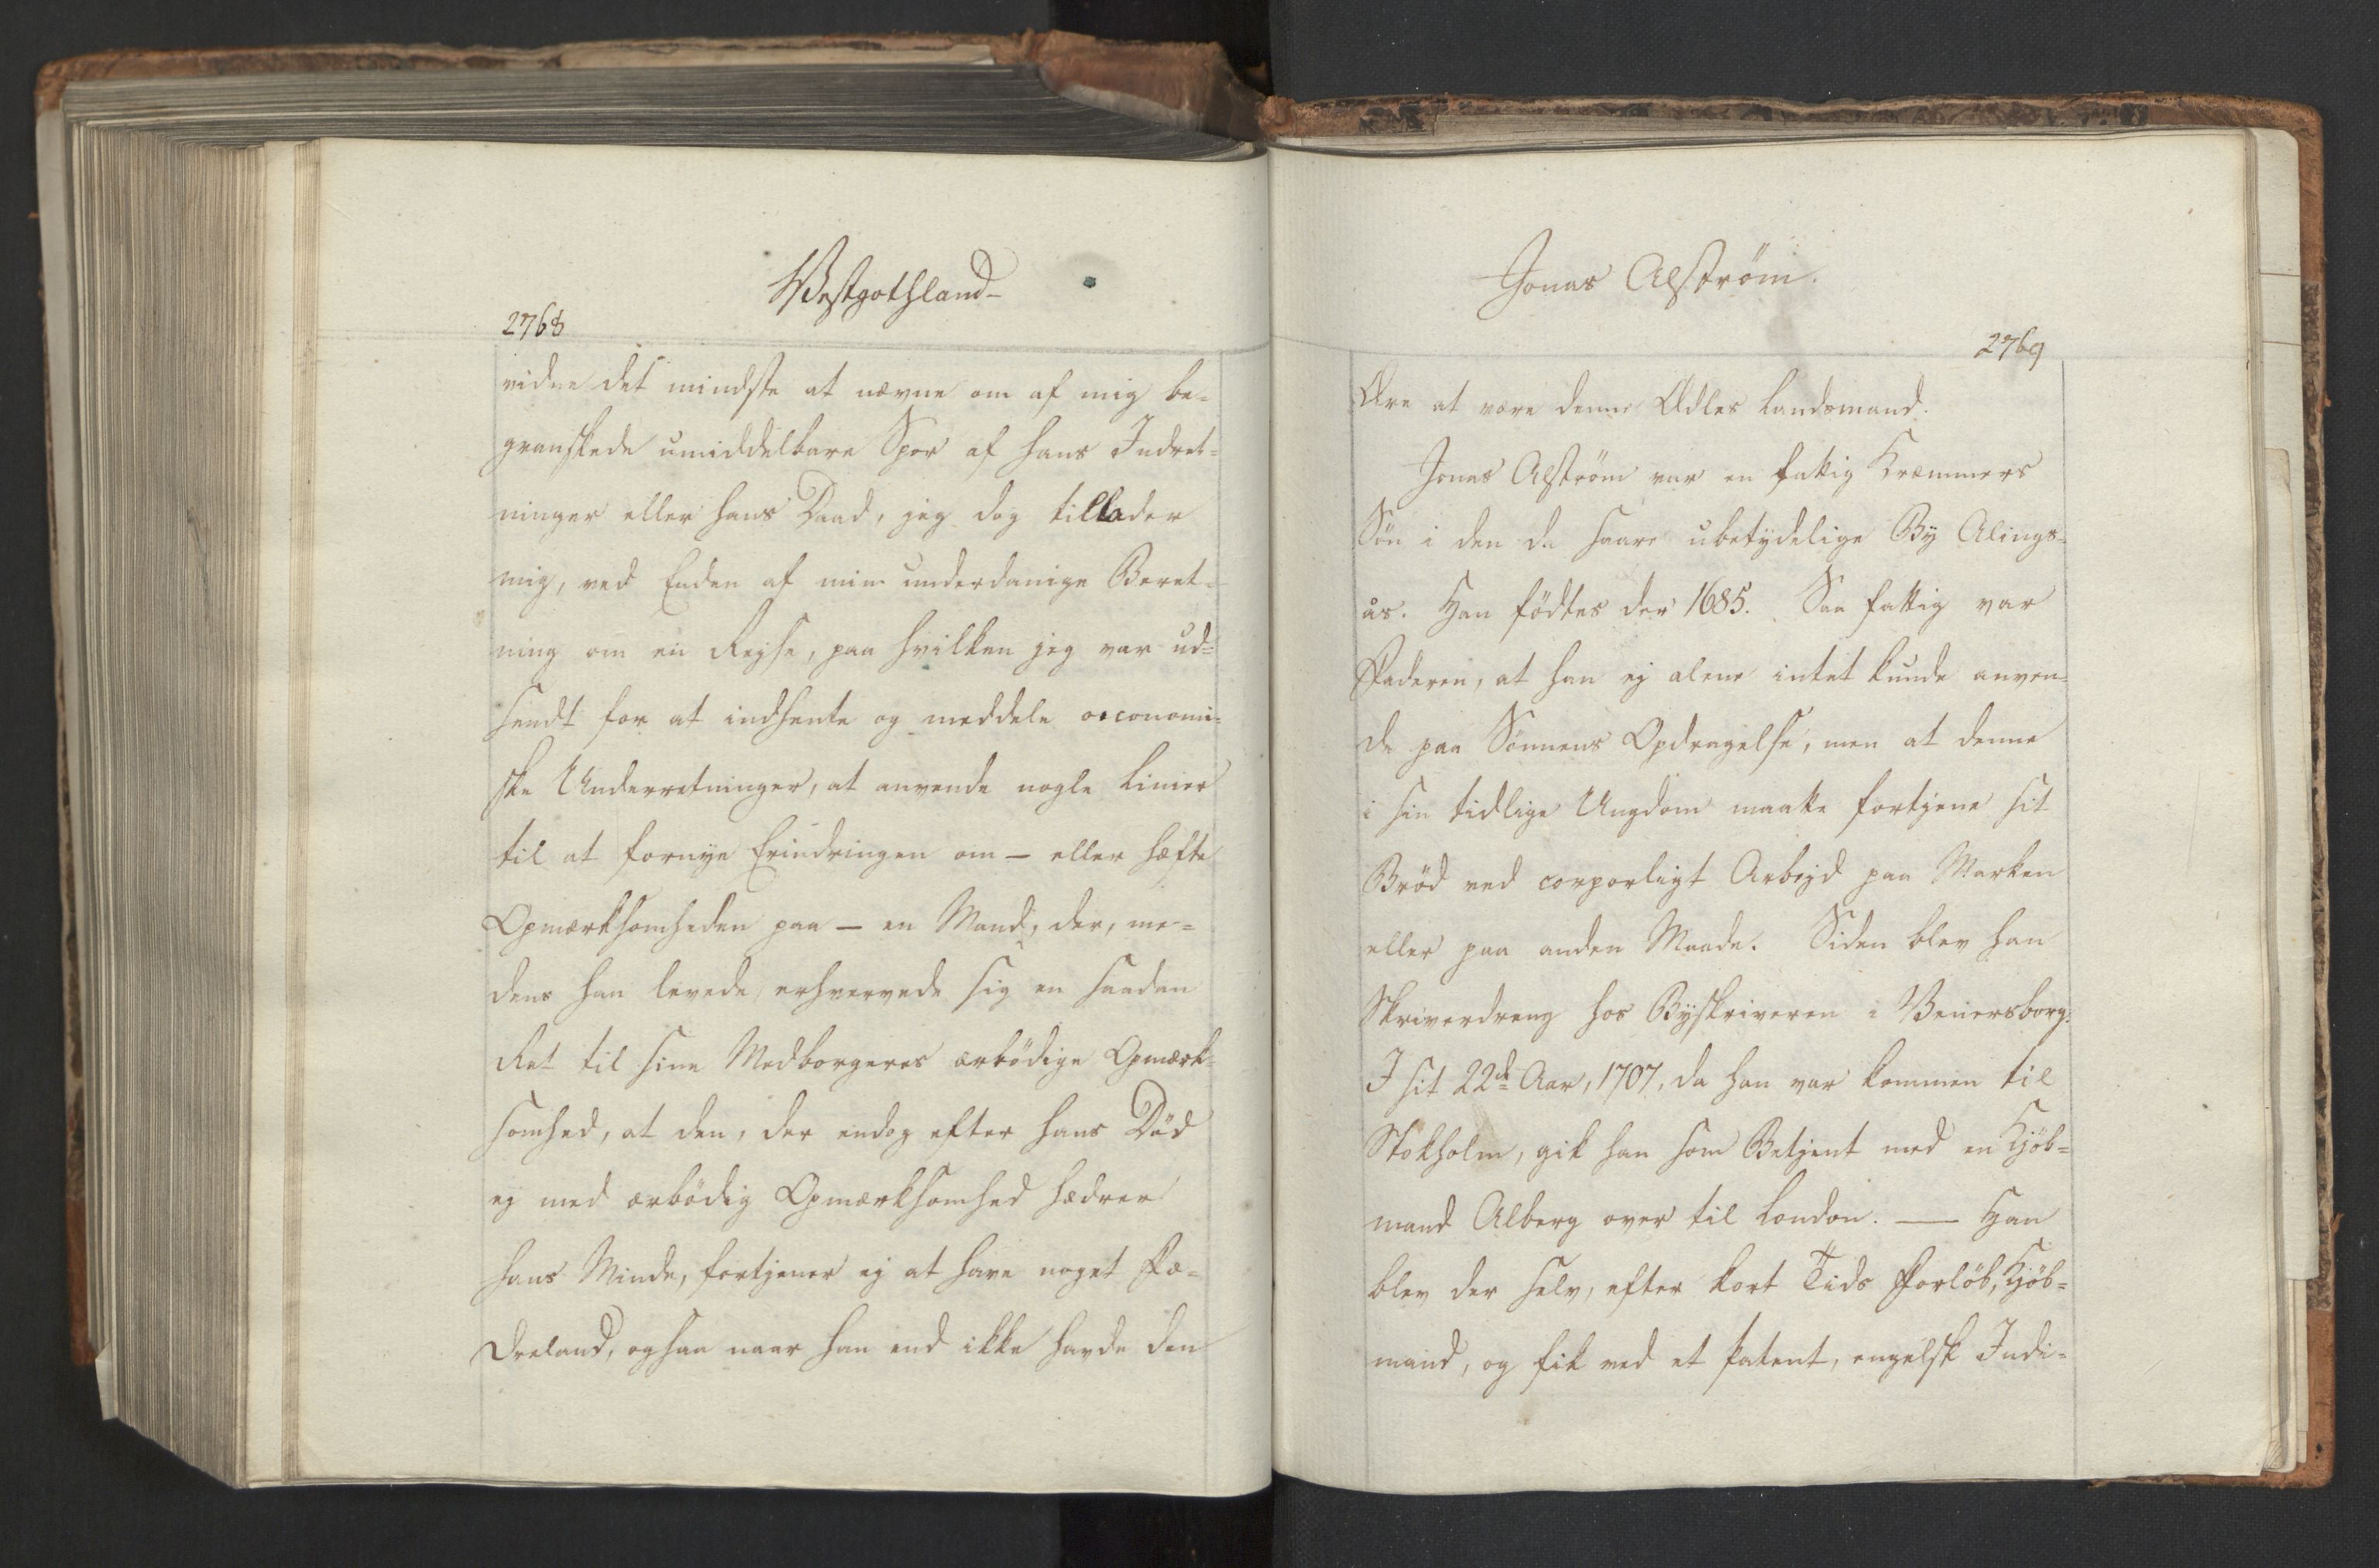 Westgothland
2768
vidne det mindste at nævne om af mig be-
granskede umiddelbare Spor af hans Indret-
ninger eller hans Daad, jeg dog tillader
mig, ved Enden af min underdanige Beret-
ning om en Rejse, paa hvilken jeg var ud-
sendt for at indhente og meddele oeconomi-
ske Underretninger, at anvende nogle Linier
til at fornye Erindringen om — eller hefte
Opmærksomheden paa — en Mand, der, me-
dens han levede, erhvervede sig en saadan
Ret til sine Medborgeres ærbödige Opmærk-
somhed, at den, der endog efter hans Död
ej med ærbödig Opmærksomhed hædrer
hans Minde, fortjener ej at have noget Fæ-
dreland, ogsaa naar han end ikke havde den
Jonas Alström.
2769
Ære at være denne Ædles Landsmand.
Jonas Alström var en fattig Kræmmers
Sön i den da saare ubetydelige By Alings-
ås. Han födtes der 1685. Saa fattig var
Faderen, at han ej alene intet kunde anven-
de paa Sönnens Opdragelse, men at denne
i sin tidlige Ungdom maatte fortjene sit
Bröd ved corporligt Arbejd paa Marken
eller paa anden Maade. Siden blev han
Skriverdreng hos Byskriveren i Venersborg.
I sit 22de Aar, 1707, da han var kommen til
Stokholm, gik han som Betjent med en Kjöb-
mand Alberg over til London. — Han
blev der selv, efter kort Tids Forlöb, Kjöb-
mand, og fik ved et Patent, engelsk Indi-